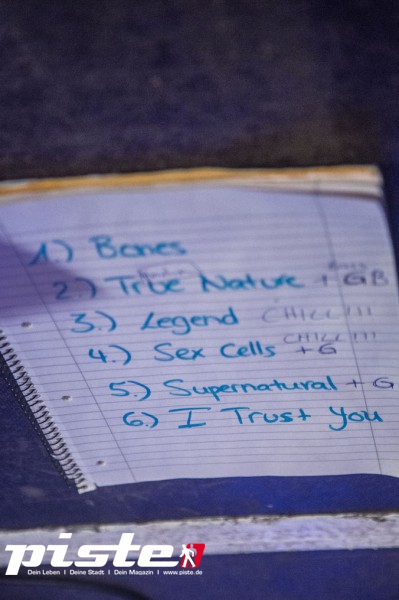 1.) Bones
2.) Tribe Nature + GB
3.) Legend CHILL!!!
4.) Sex Cells + G CHILL!!!
5.) Supernatural + G
6.) I Trust You
piste
Dein Leben I Deine Stadt I Dein Magazin I www.piste.de